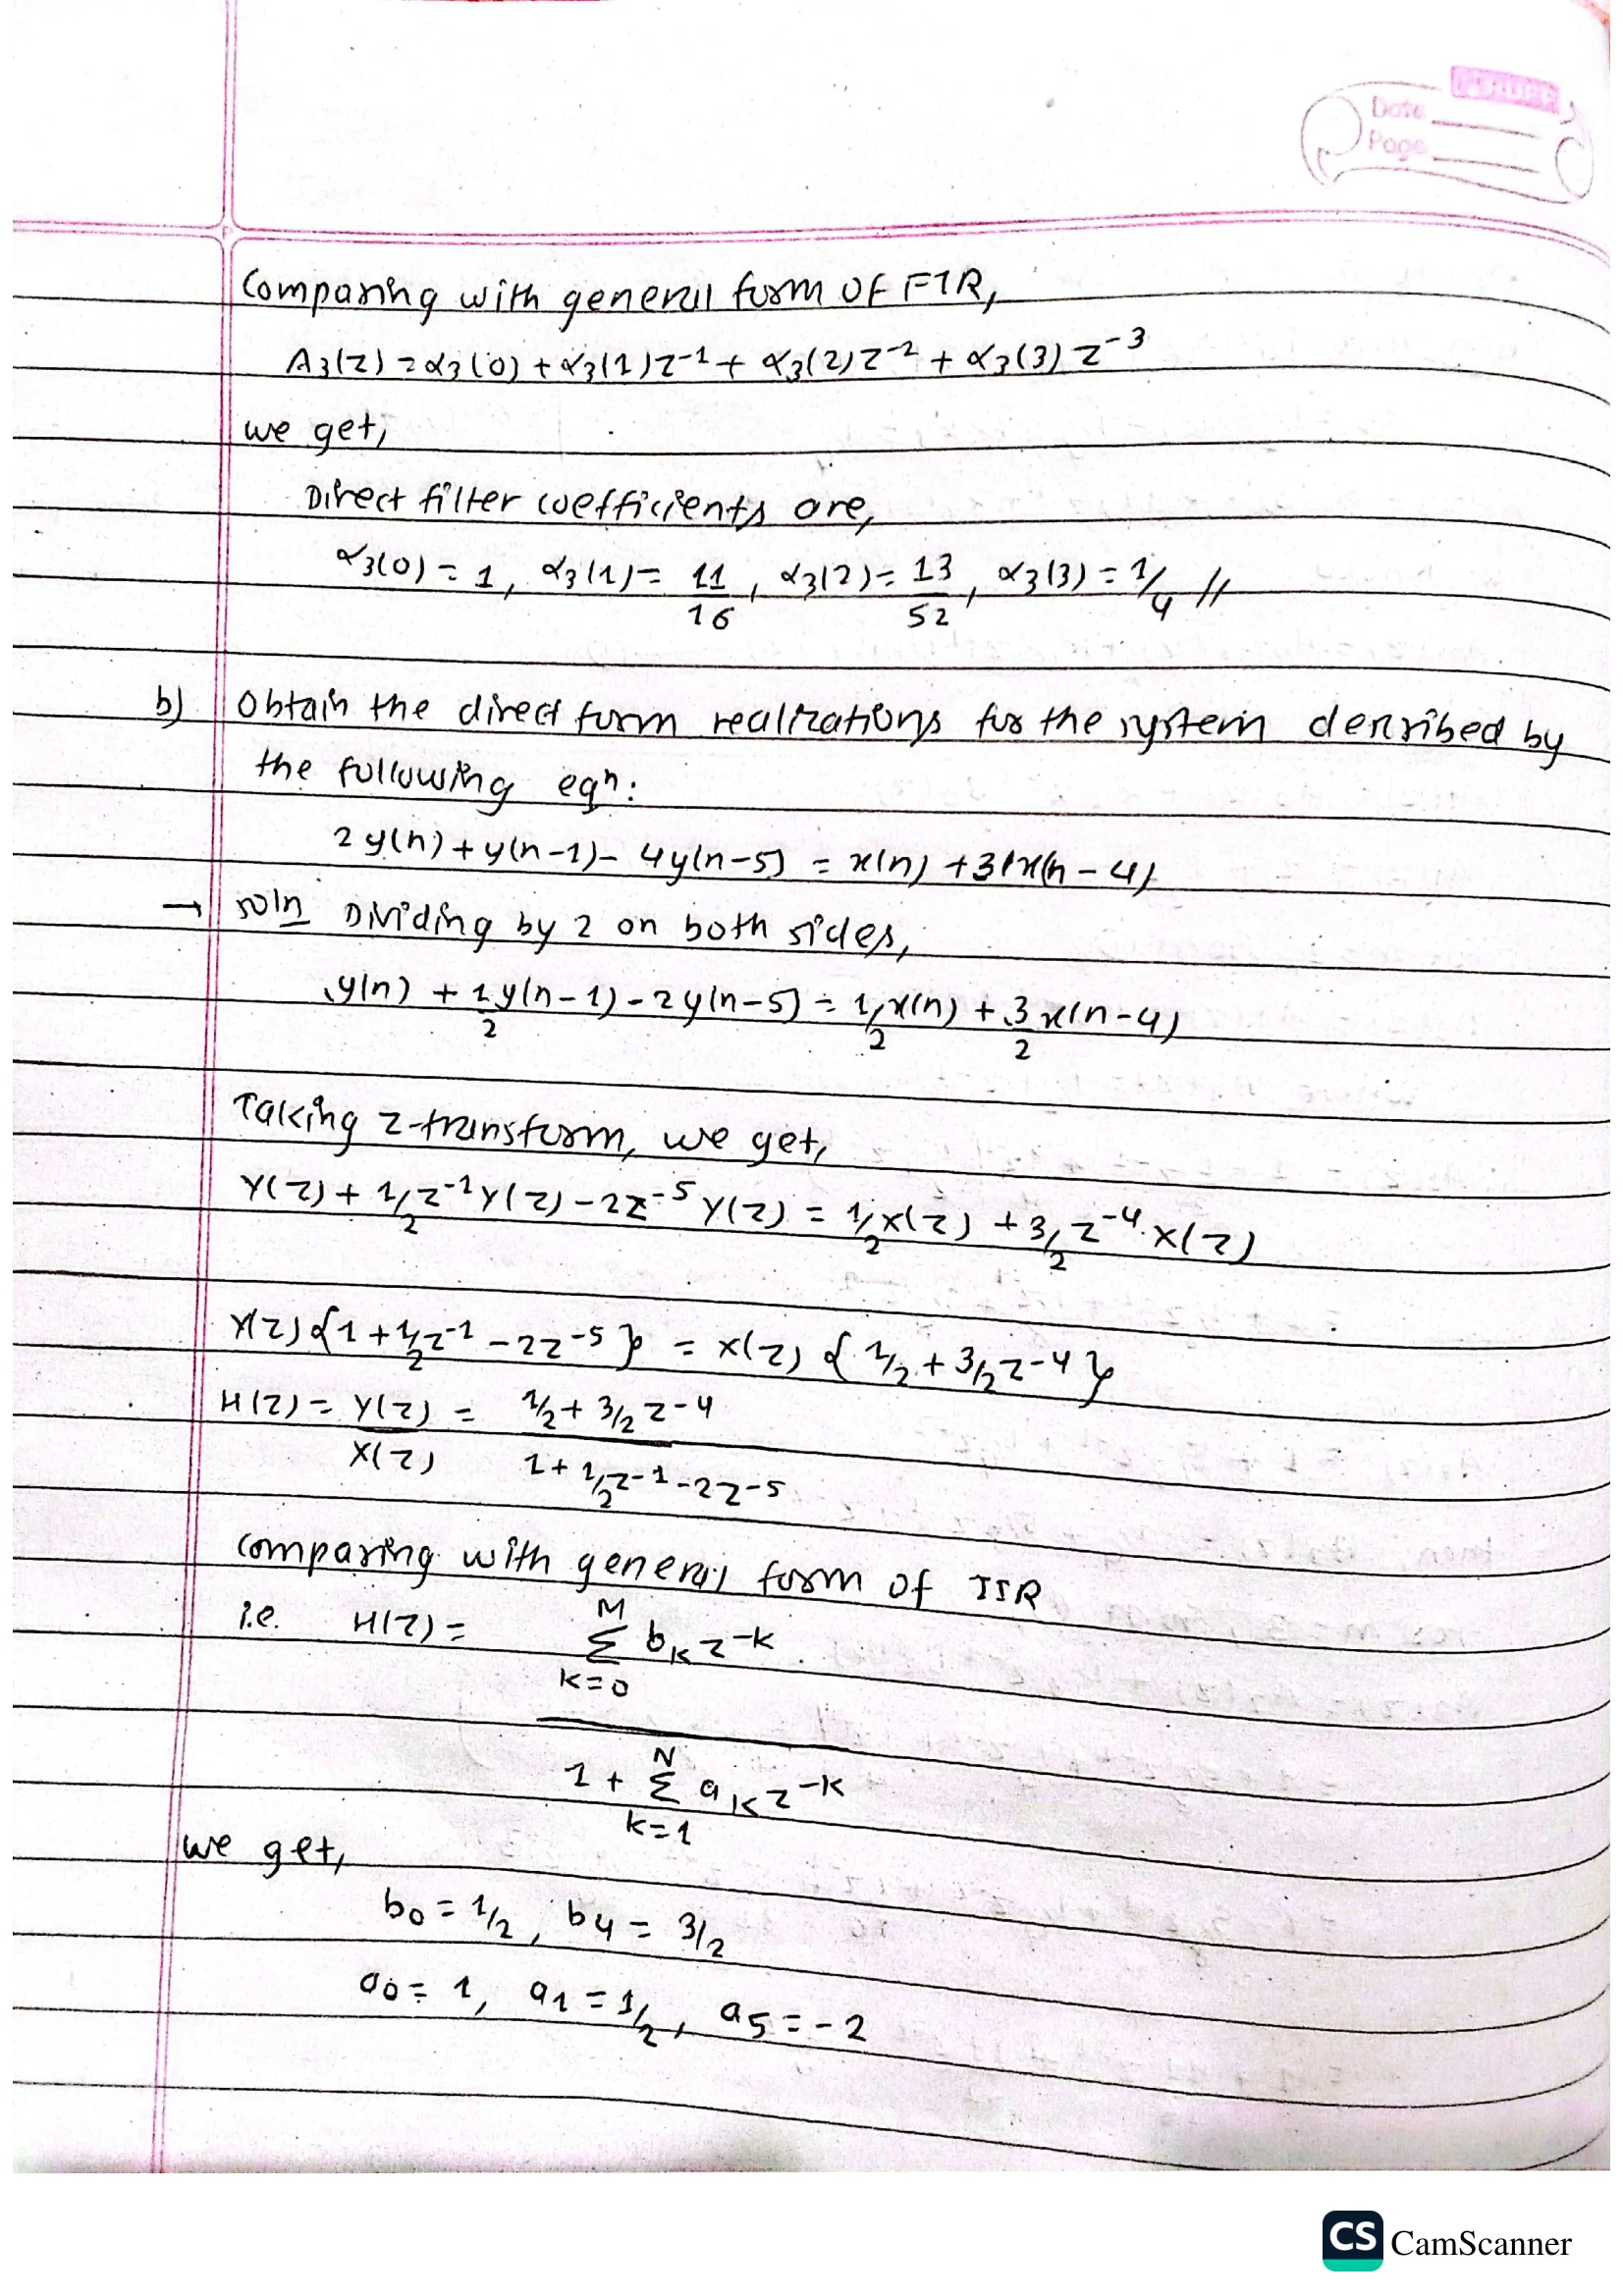 Date
Page
Comparing with general form of FIR,
A₃(z) = α₃(0) + α₃(1)z⁻¹ + α₃(2)z⁻² + α₃(3)z⁻³
we get,
Direct filter coefficients are,
α₃(0) = 1, α₃(1) = 11/16, α₃(2) = 13/52, α₃(3) = 1/4 //
b) Obtain the direct form realizations for the system described by
the following eqⁿ:
2y(n) + y(n-1) - 4y(n-5) = x(n) + 3x(n-4)
→ soln Dividing by 2 on both sides,
y(n) + 1/2 y(n-1) - 2y(n-5) = 1/2 x(n) + 3/2 x(n-4)
Taking z-transform, we get,
Y(z) + 1/2 z⁻¹ Y(z) - 2z⁻⁵ Y(z) = 1/2 X(z) + 3/2 z⁻⁴ X(z)
Y(z) {1 + 1/2 z⁻¹ - 2z⁻⁵} = X(z) {1/2 + 3/2 z⁻⁴}
H(z) = Y(z)/X(z) = (1/2 + 3/2 z⁻⁴)/(1 + 1/2 z⁻¹ - 2z⁻⁵)
Comparing with general form of IIR
i.e. H(z) = M Σ k=0 bₖ z⁻ᵏ
1 + N Σ k=1 aₖ z⁻ᵏ
we get,
b₀ = 1/2, b₄ = 3/2
a₀ = 1, a₁ = 1/2, a₅ = -2
CS CamScanner